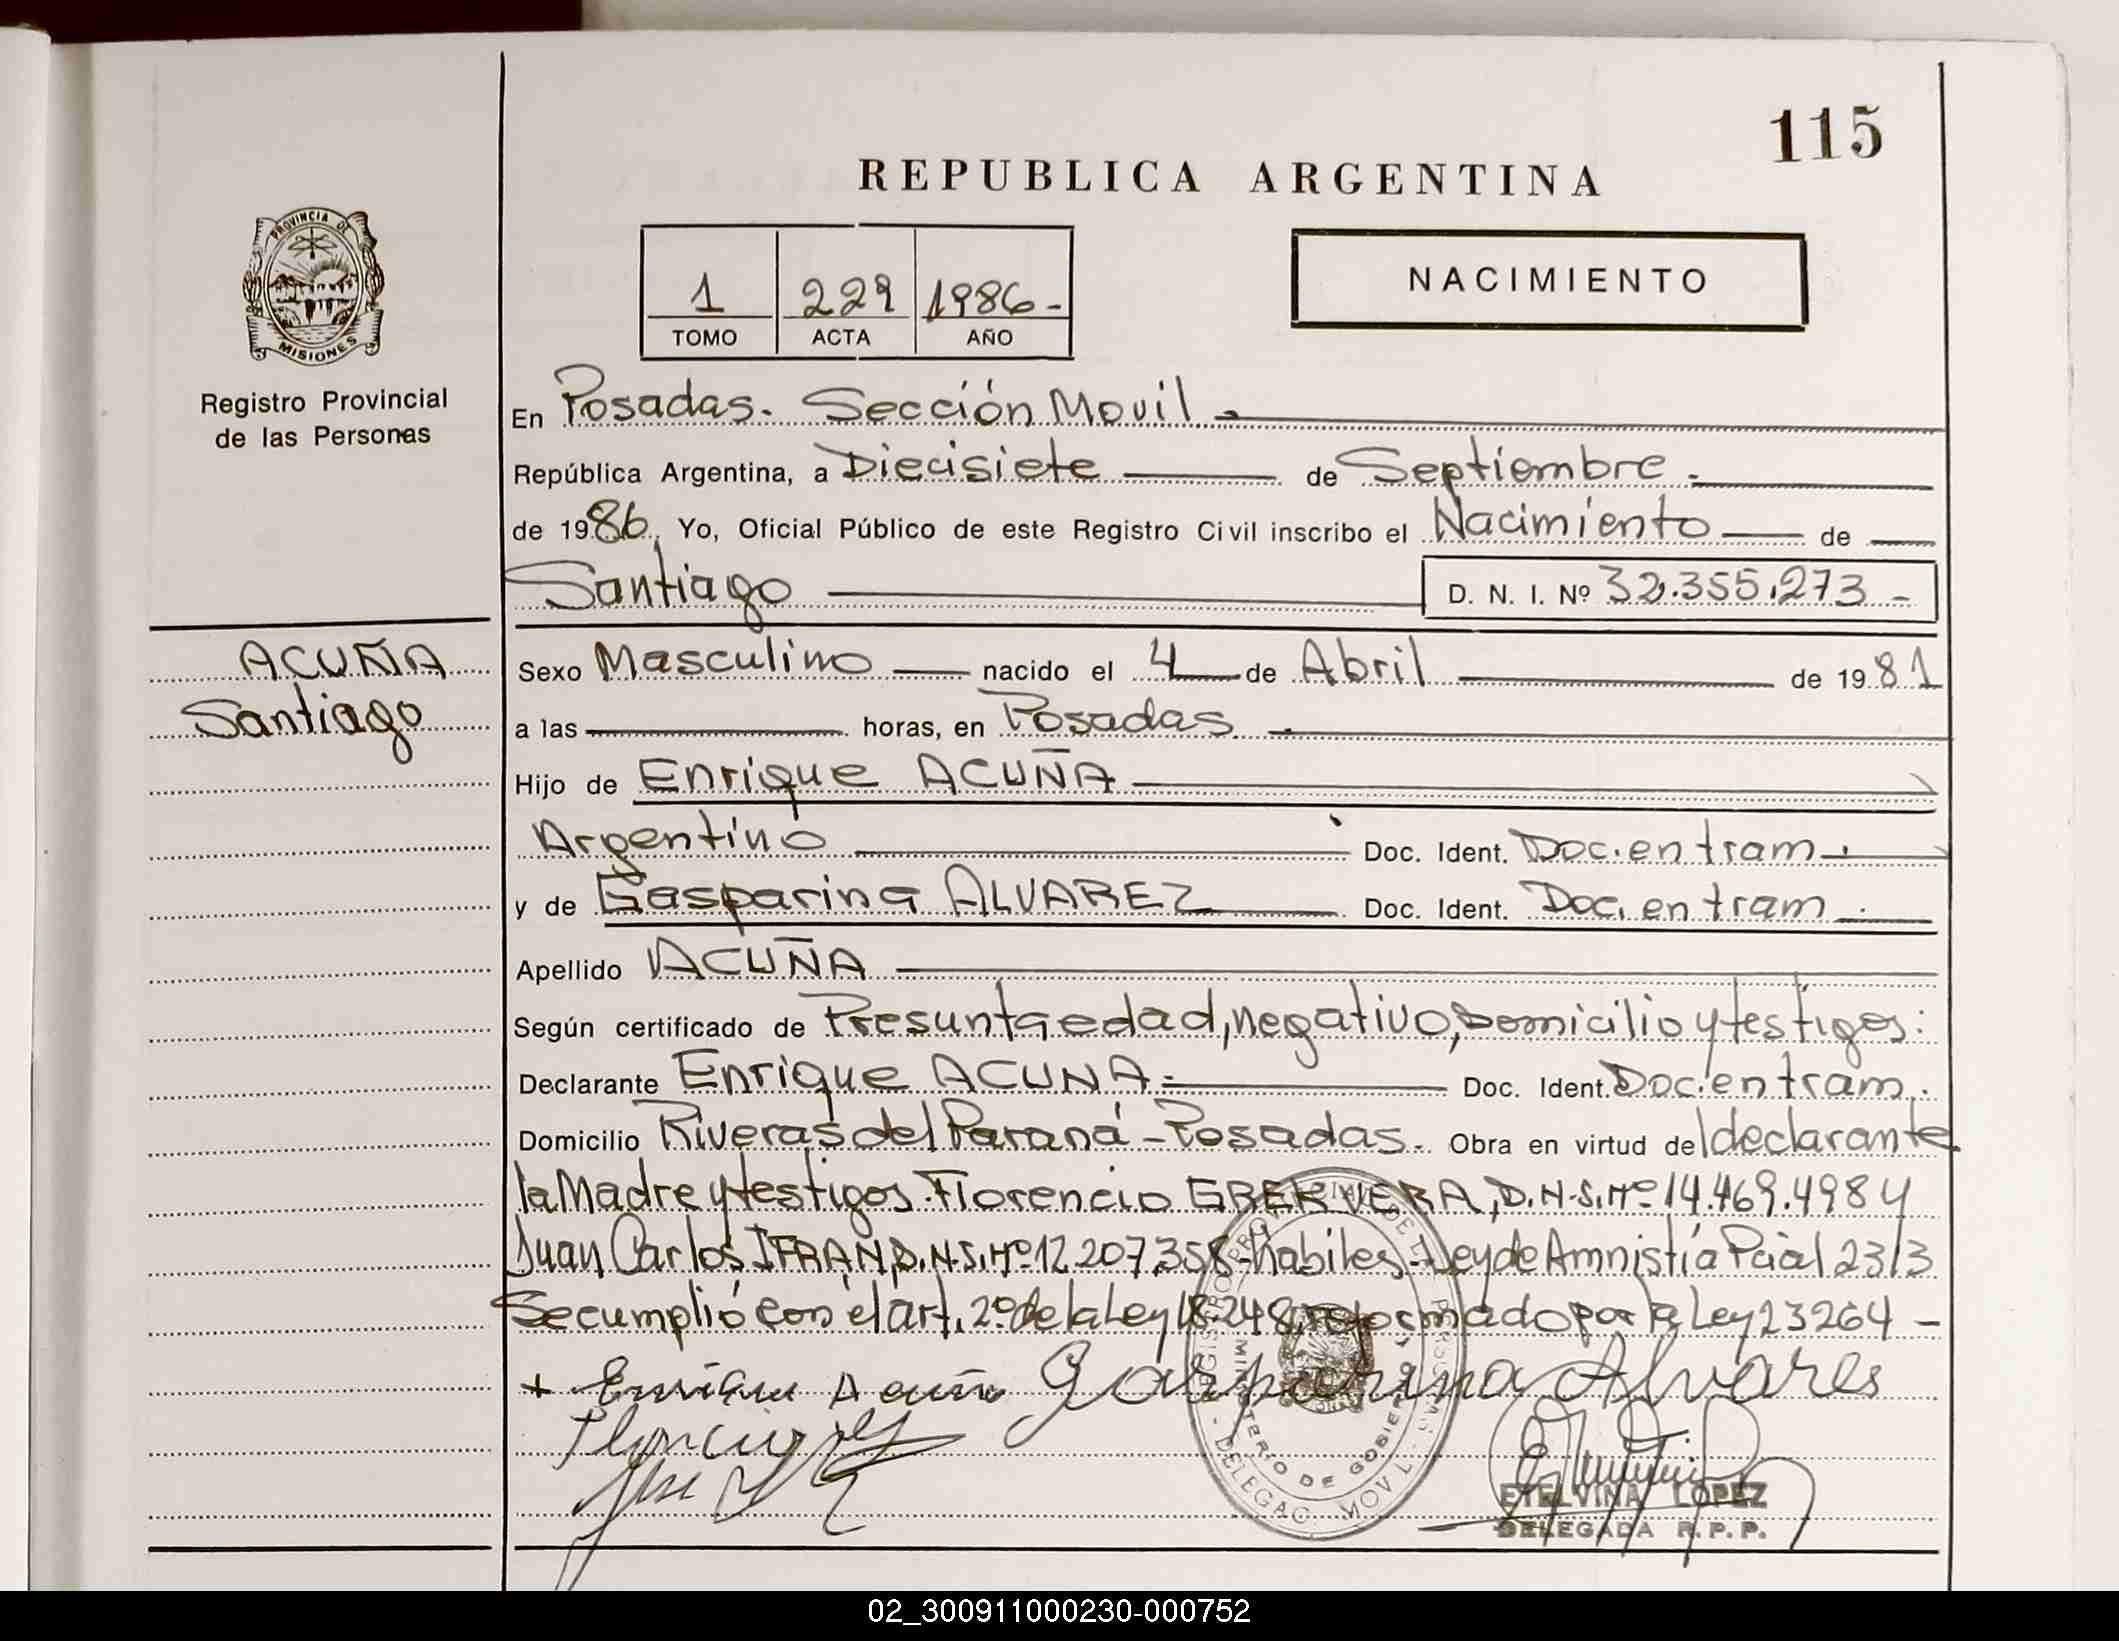 115
REPUBLICA ARGENTINA
PROVINCIA DE
MISIONES
Registro Provincial
de las Personas
1 229 1986-
TOMO ACTA AÑO
NACIMIENTO
En Posadas. Sección Movil.
República Argentina, a Diecisiete de Septiembre.
de 1986. Yo, Oficial Público de este Registro Civil inscribo el Nacimiento de
Santiago D. N. I. Nº 32.355.273-
ACUÑA
Santiago
Sexo Masculino nacido el 4 de Abril de 1981
a las horas, en Posadas.
Hijo de Enrique ACUÑA
Argentino Doc. Ident. Doc. en tram.
y de Gasparina ALVAREZ Doc. Ident. Doc. en tram.
Apellido ACUÑA
Según certificado de Presunta edad, negativo, Domicilio y testigos:
Declarante Enrique ACUNA.- Doc. Ident. Doc. en tram.
Domicilio Riveras del Paraná - Posadas. Obra en virtud del declarante
la Madre y testigos. Florencio VERA, D.N.I. Nº 14.469.498 y
Juan Carlos IFRAN, D.N.I. Nº 12.207.358 - habiles - Ley de Amnistía Pcial 2313
Se cumplió con el art. 2º de la Ley 18.248, reformado por la Ley 23264 -
+ Enrique Acuña Gasparina Alvares
REGISTRO PROVINCIAL DE LAS PERSONAS
MINISTERIO DE GOBIERNO
- DELEGAC. MOVIL -
ETELVINA LOPEZ
DELEGADA R.P.P.
02_300911000230-000752